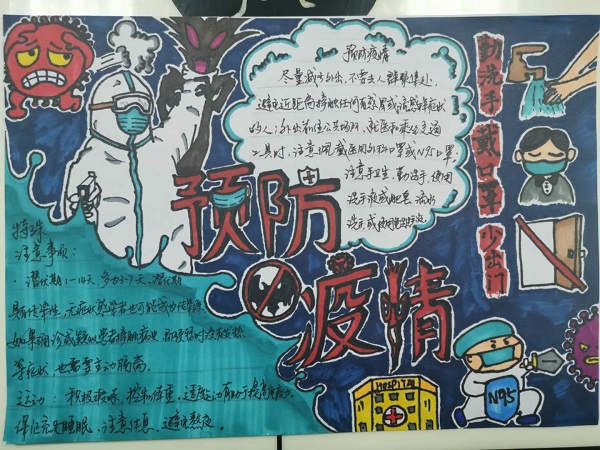 预防疫情
尽量减少外出，不要去人群聚集处，
避免近距离接触任何有感冒或流感样症状
的人；外出前往公共场所，就医和乘坐交通
工具时，注意佩戴医用外科口罩或N95口罩。
注意手卫生，勤洗手，使用
洗手液或肥皂，流水
洗手或
勤洗手
戴口罩
少出门
预防
疫情
特殊
注意事项：
·潜伏期1-14天，多为3-7天，潜伏期
具传染性，无症状感染者也可能成为传染源，
如果确诊或疑似患者接触症状，即使暂时没有发热
等症状，也需要主动隔离。
运动：积极
保证充足睡眠，注意休息，避免熬夜。
HOSPITAL
N95